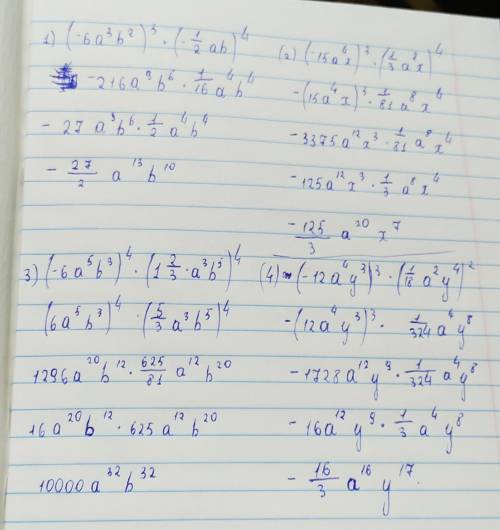 1) (-6a³b²)³ · (-1/2 ab)⁴
-216a⁹b⁶ · 1/16 a⁴b⁴
- 27a⁹b⁶ · 1/2 a⁴b⁴
- 27/2 a¹³b¹⁰
(2) (-15a⁴x)³ · (1/3 a²x)⁴
-(15a⁴x)³ · 1/81 a⁸x⁴
-3375a¹²x³ · 1/81 a⁸x⁴
-125a¹²x³ · 1/3 a⁸x⁴
-125/3 a²⁰x⁷
3) (-6a⁵b³)⁴ · (1 2/3 · a³b⁵)⁴
(6a⁵b³)⁴ · (5/3 a³b⁵)⁴
1296a²⁰b¹² · 625/81 a¹²b²⁰
16a²⁰b¹² · 625a¹²b²⁰
10000a³²b³²
(4) (-12a⁴y³)³ · (1/18 a²y⁴)²
-(12a⁴y³)³ · 1/324 a⁴y⁸
-1728a¹²y⁹ · 1/324 a⁴y⁸
-16a¹²y⁹ · 1/3 a⁴y⁸
- 16/3 a¹⁶y¹⁷.